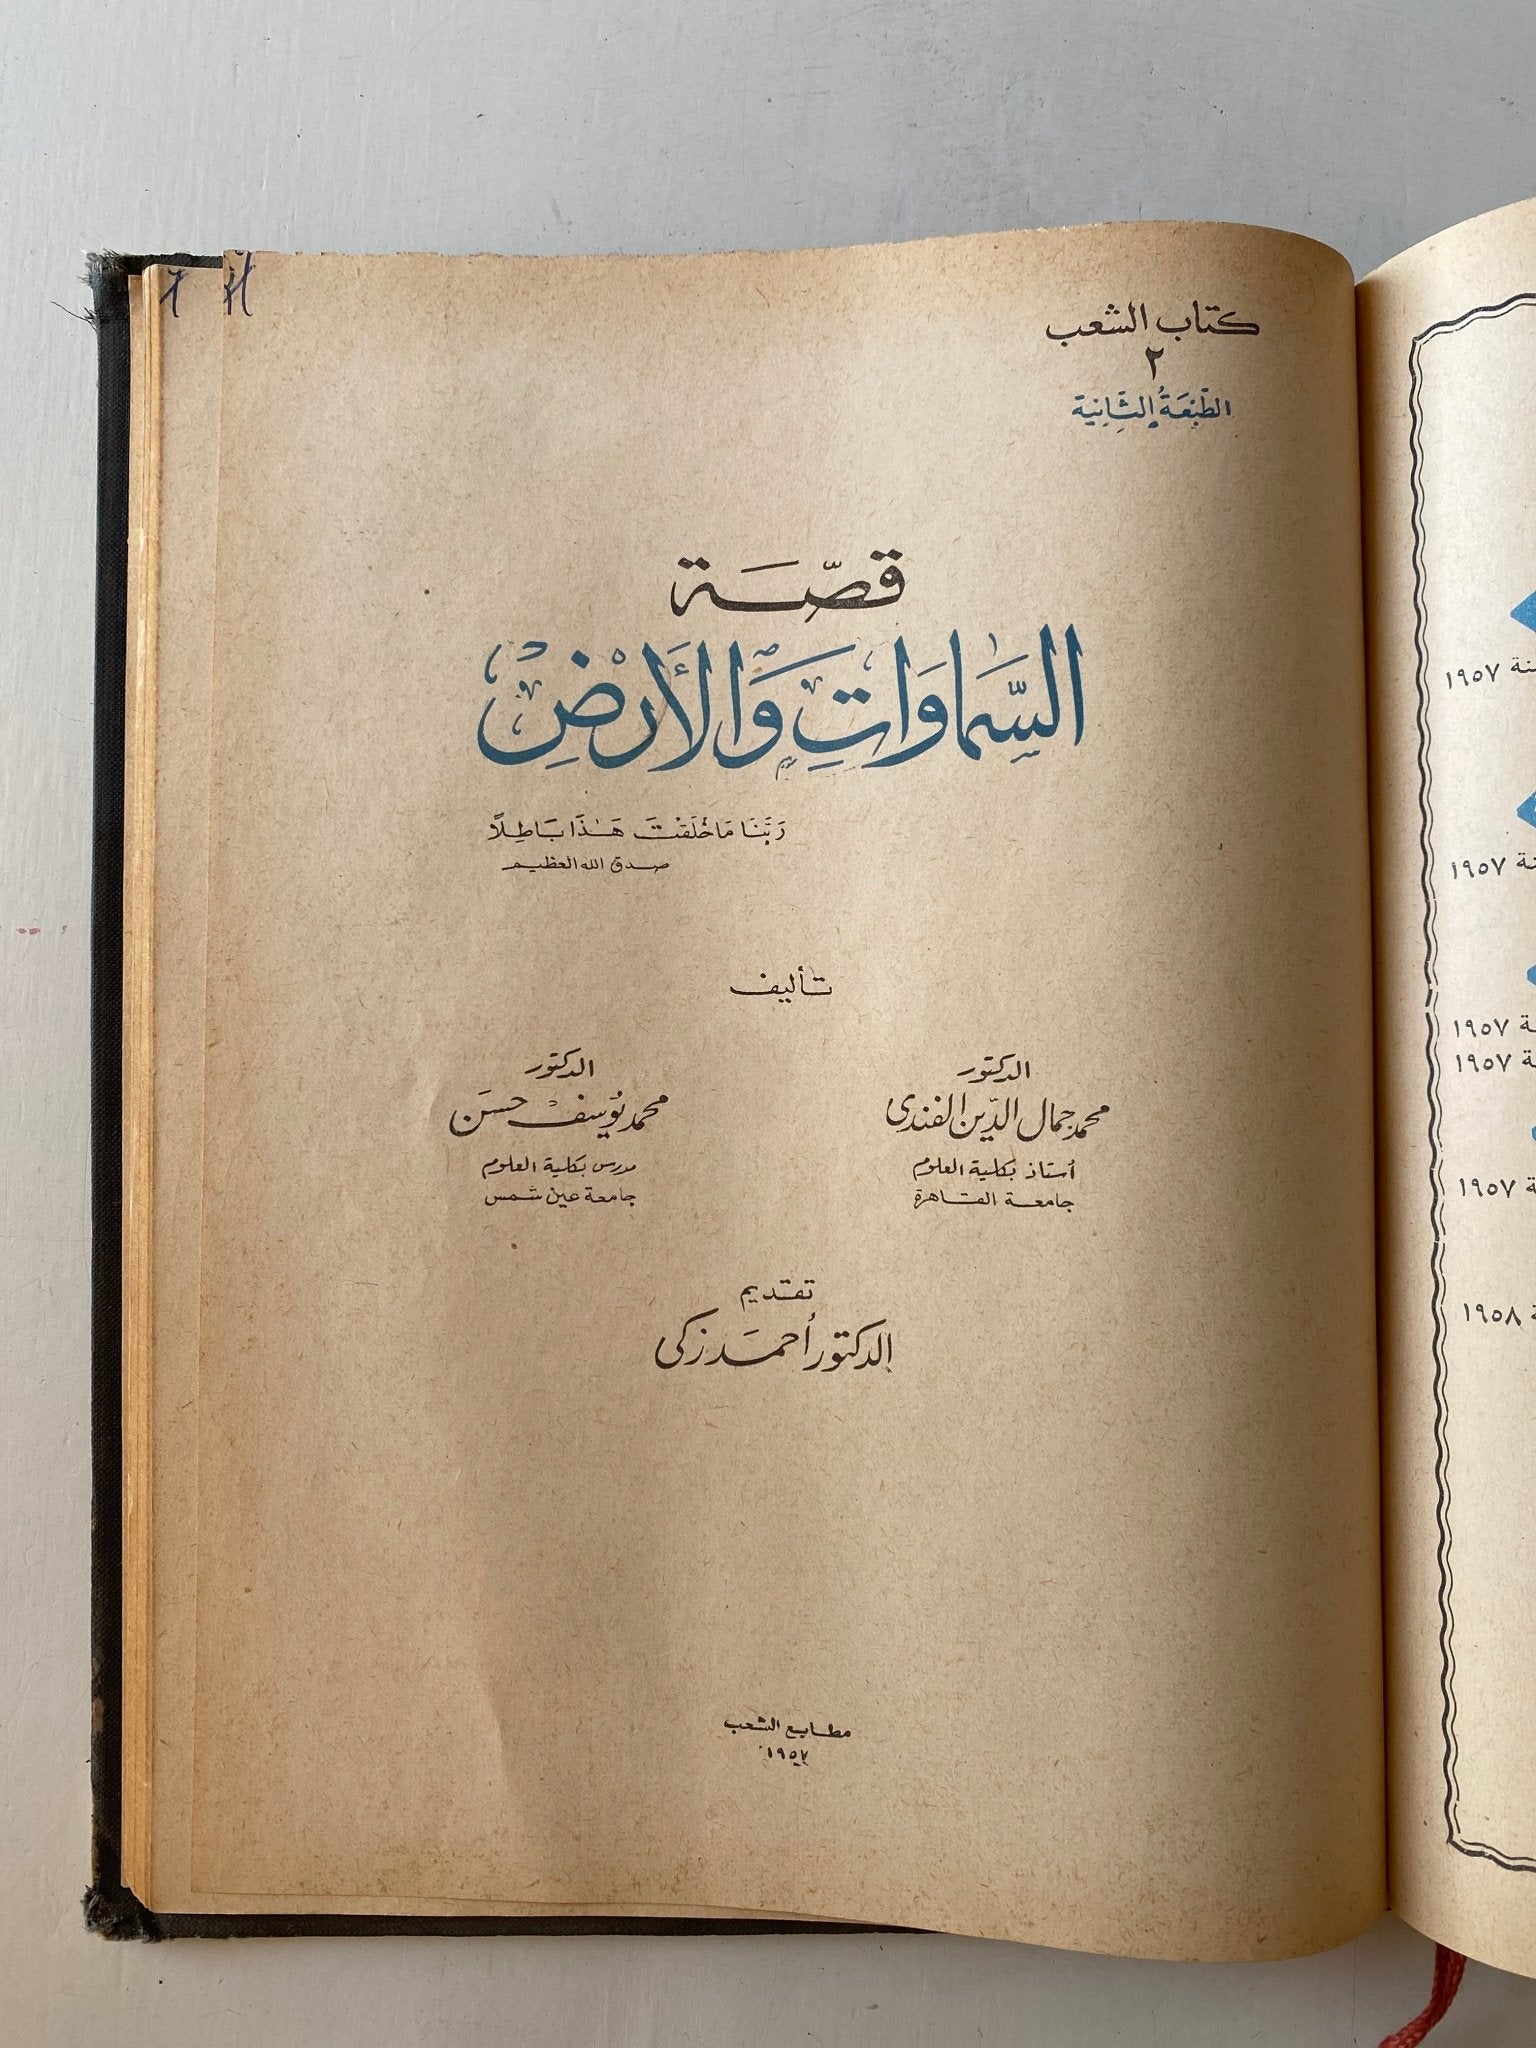 كتاب الشعب
٢
الطَّبْعَةُ الثَّانِية
قصّة
السَّمَاوَاتِ وَالأَرْضِ
رَبَّنَا مَا خَلَقْتَ هَٰذَا بَاطِلًا
صدق الله العظيم
تأليف
الدكتور
محمد جمال الدّين الفندى
أستاذ بكلية العلوم
جامعة القاهرة
الدكتور
محمد يُوسف حسَن
مدرس بكلية العلوم
جامعة عين شمس
تقديم
الدكتور أحمَد زكى
مطابع الشعب
١٩٥٧
سنة ١٩٥٧
١٩٥٧
١٩٥٧
١٩٥٧
١٩٥٧
١٩٥٨